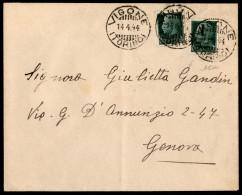 VIGONE
14.4.44
(TORINO)
Signora Giulietta Gandin
Via G. D'Annunzio 2-47
Genova